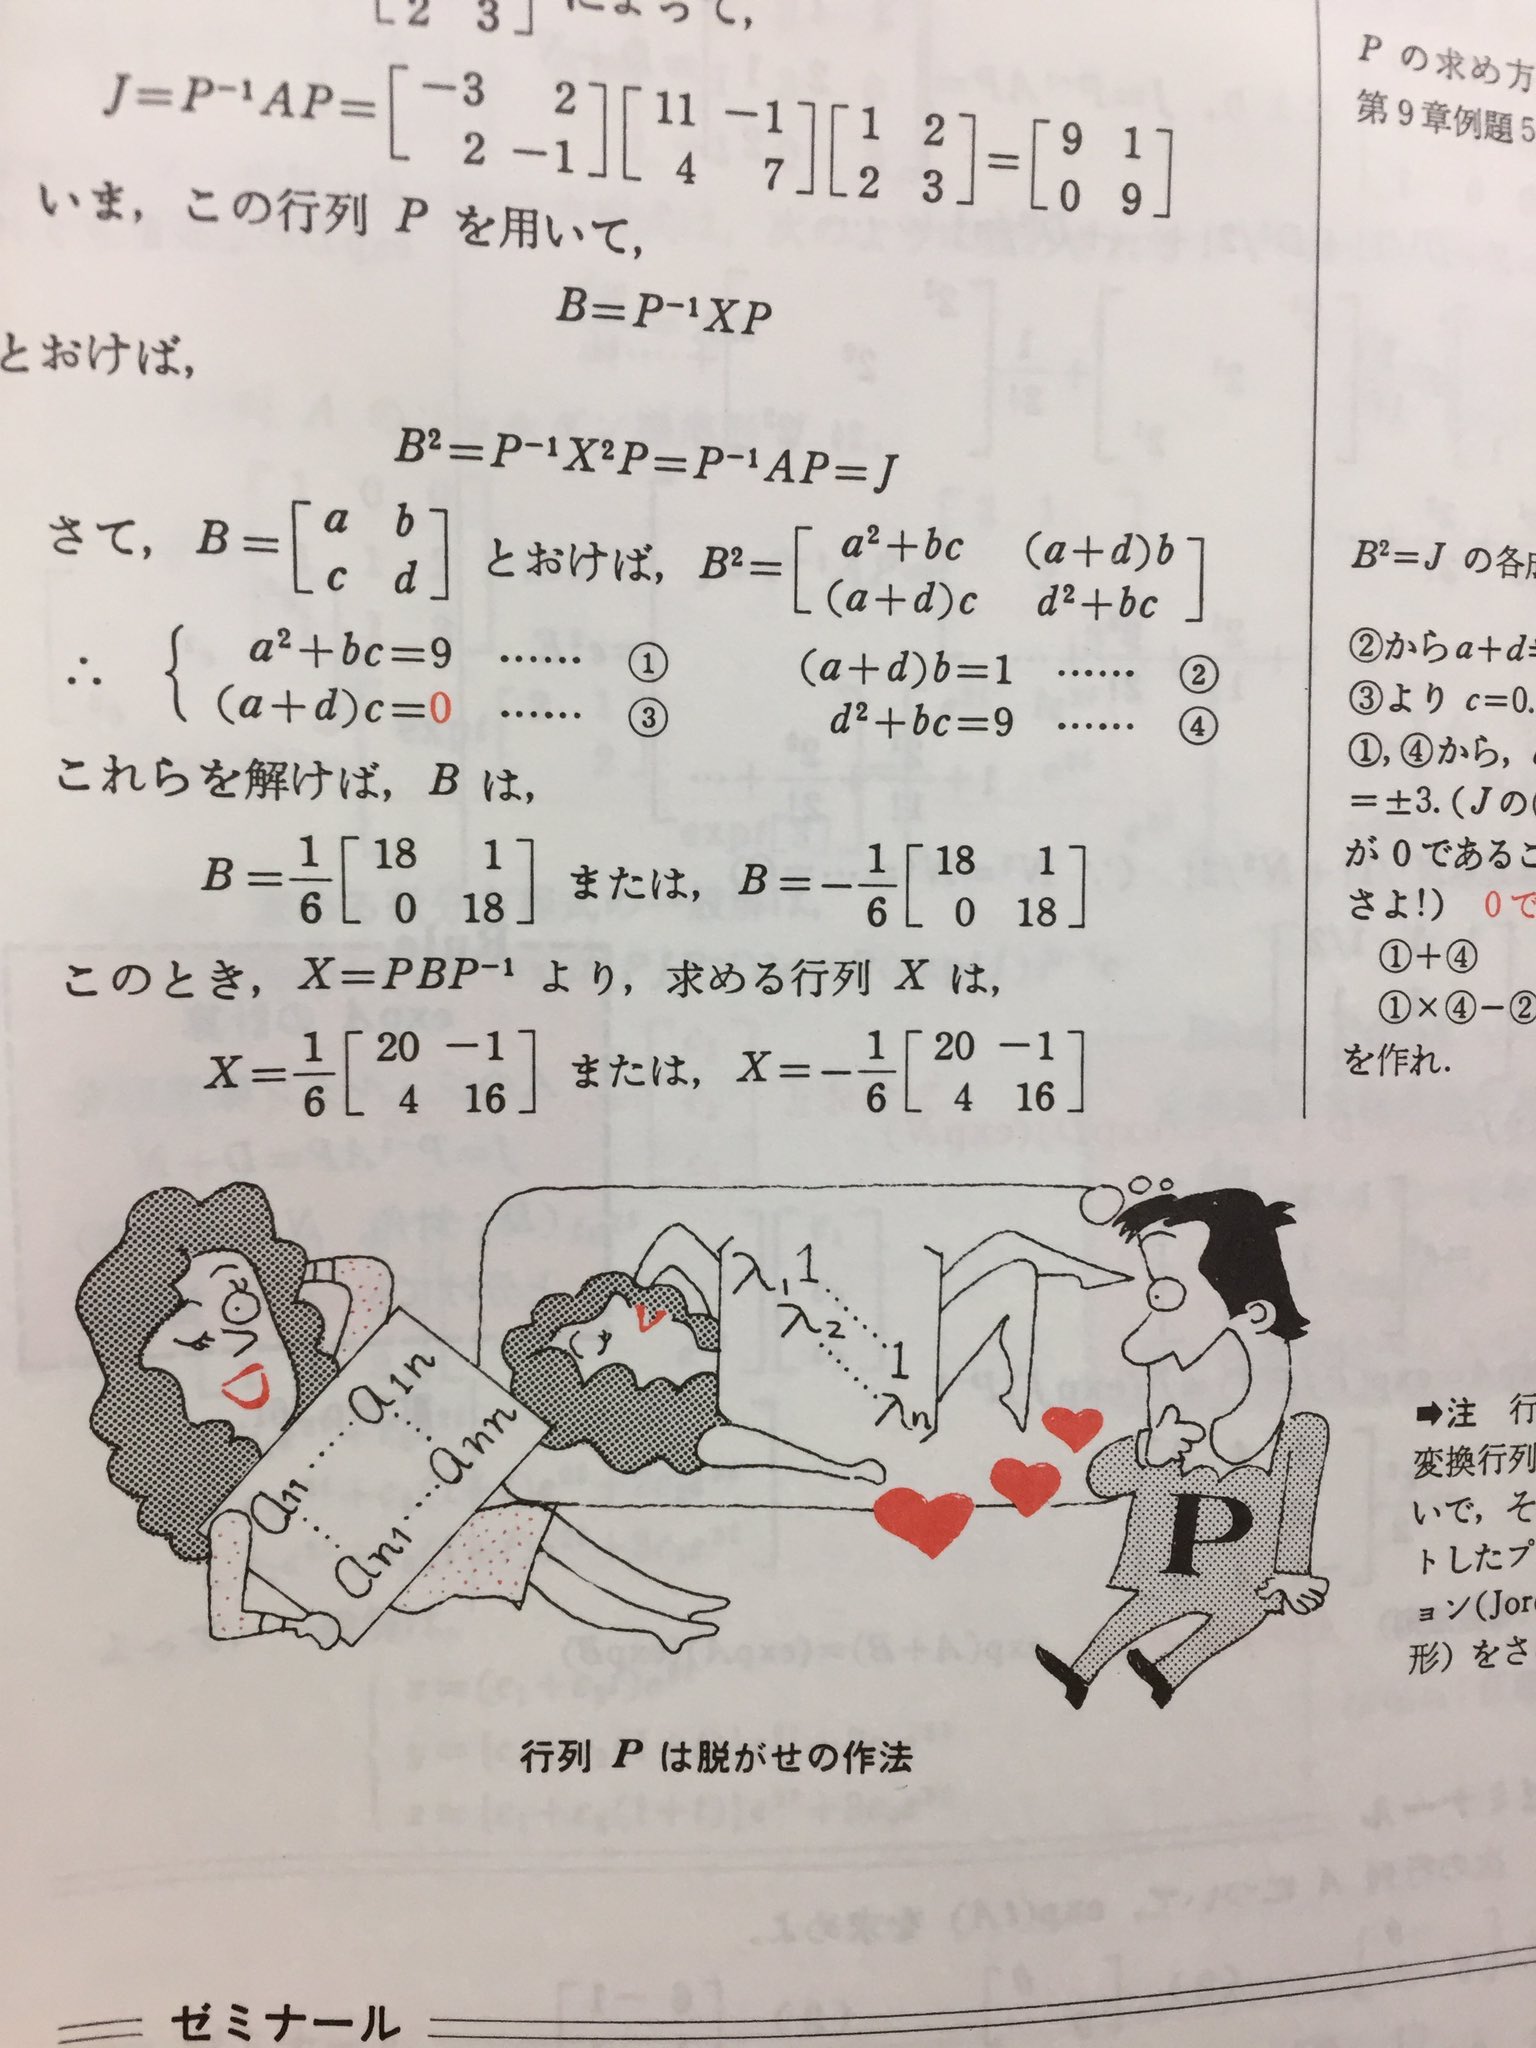 [2 3] によって,
J=P⁻¹AP=[-3 2; 2 -1][11 -1; 4 7][1 2; 2 3]=[9 1; 0 9]
いま, この行列 P を用いて,
B=P⁻¹XP
とおけば,
B²=P⁻¹X²P=P⁻¹AP=J
さて, B=[a b; c d] とおけば, B²=[a²+bc (a+d)b; (a+d)c d²+bc]
∴ { a²+bc=9 …… ① (a+d)b=1 …… ②
(a+d)c=0 …… ③ d²+bc=9 …… ④
これらを解けば, B は,
B=1/6[18 1; 0 18] または, B=-1/6[18 1; 0 18]
このとき, X=PBP⁻¹ より, 求める行列 X は,
X=1/6[20 -1; 4 16] または, X=-1/6[20 -1; 4 16]
P の求め方
第9章例題5
B²=J の各成
②からa+d
③より c=0.
①, ④から,
=±3. (Jの
が0であるこ
さよ!) 0で
①+④
①×④-②
を作れ.
a11 ⋯ a1n
an1 ⋯ ann
λ1 1
λ2 ⋱ 1
λn
P
➡注 行
変換行列
いで, そ
トしたプ
ョン(Jor
形) をさ
行列 P は脱がせの作法
ゼミナール